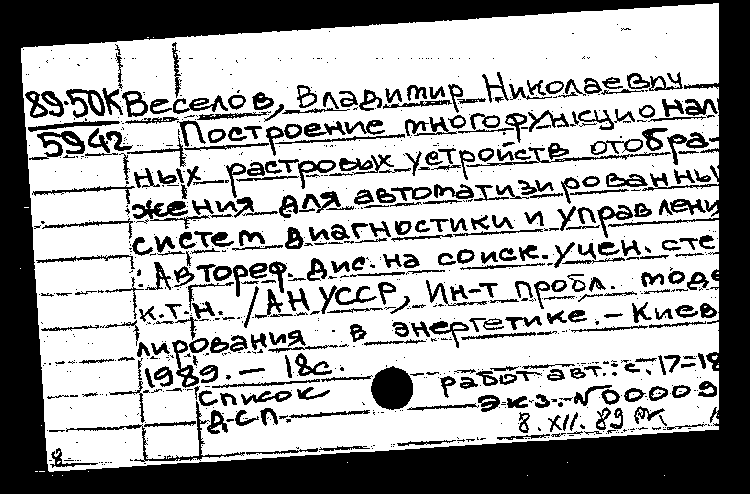 89-50К Веселов, Владимир Николаевич
5942 Построение многофункционал
ных растровых устройств отобра-
жения для автоматизированны
систем диагностики и управлени
: Автореф. дис. на соиск. учен. сте
к.т.н. /АН УССР, Ин-т пробл. моде
лирования в энергетике. - Киев
1989. - 18с.
Список работ авт.: с. 17-18
ДСП. Экз. №00009
8. XII. 89
8